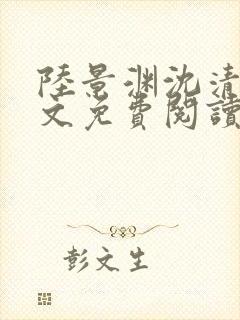 陸景渊沈清
文免費閱讀
彭文生